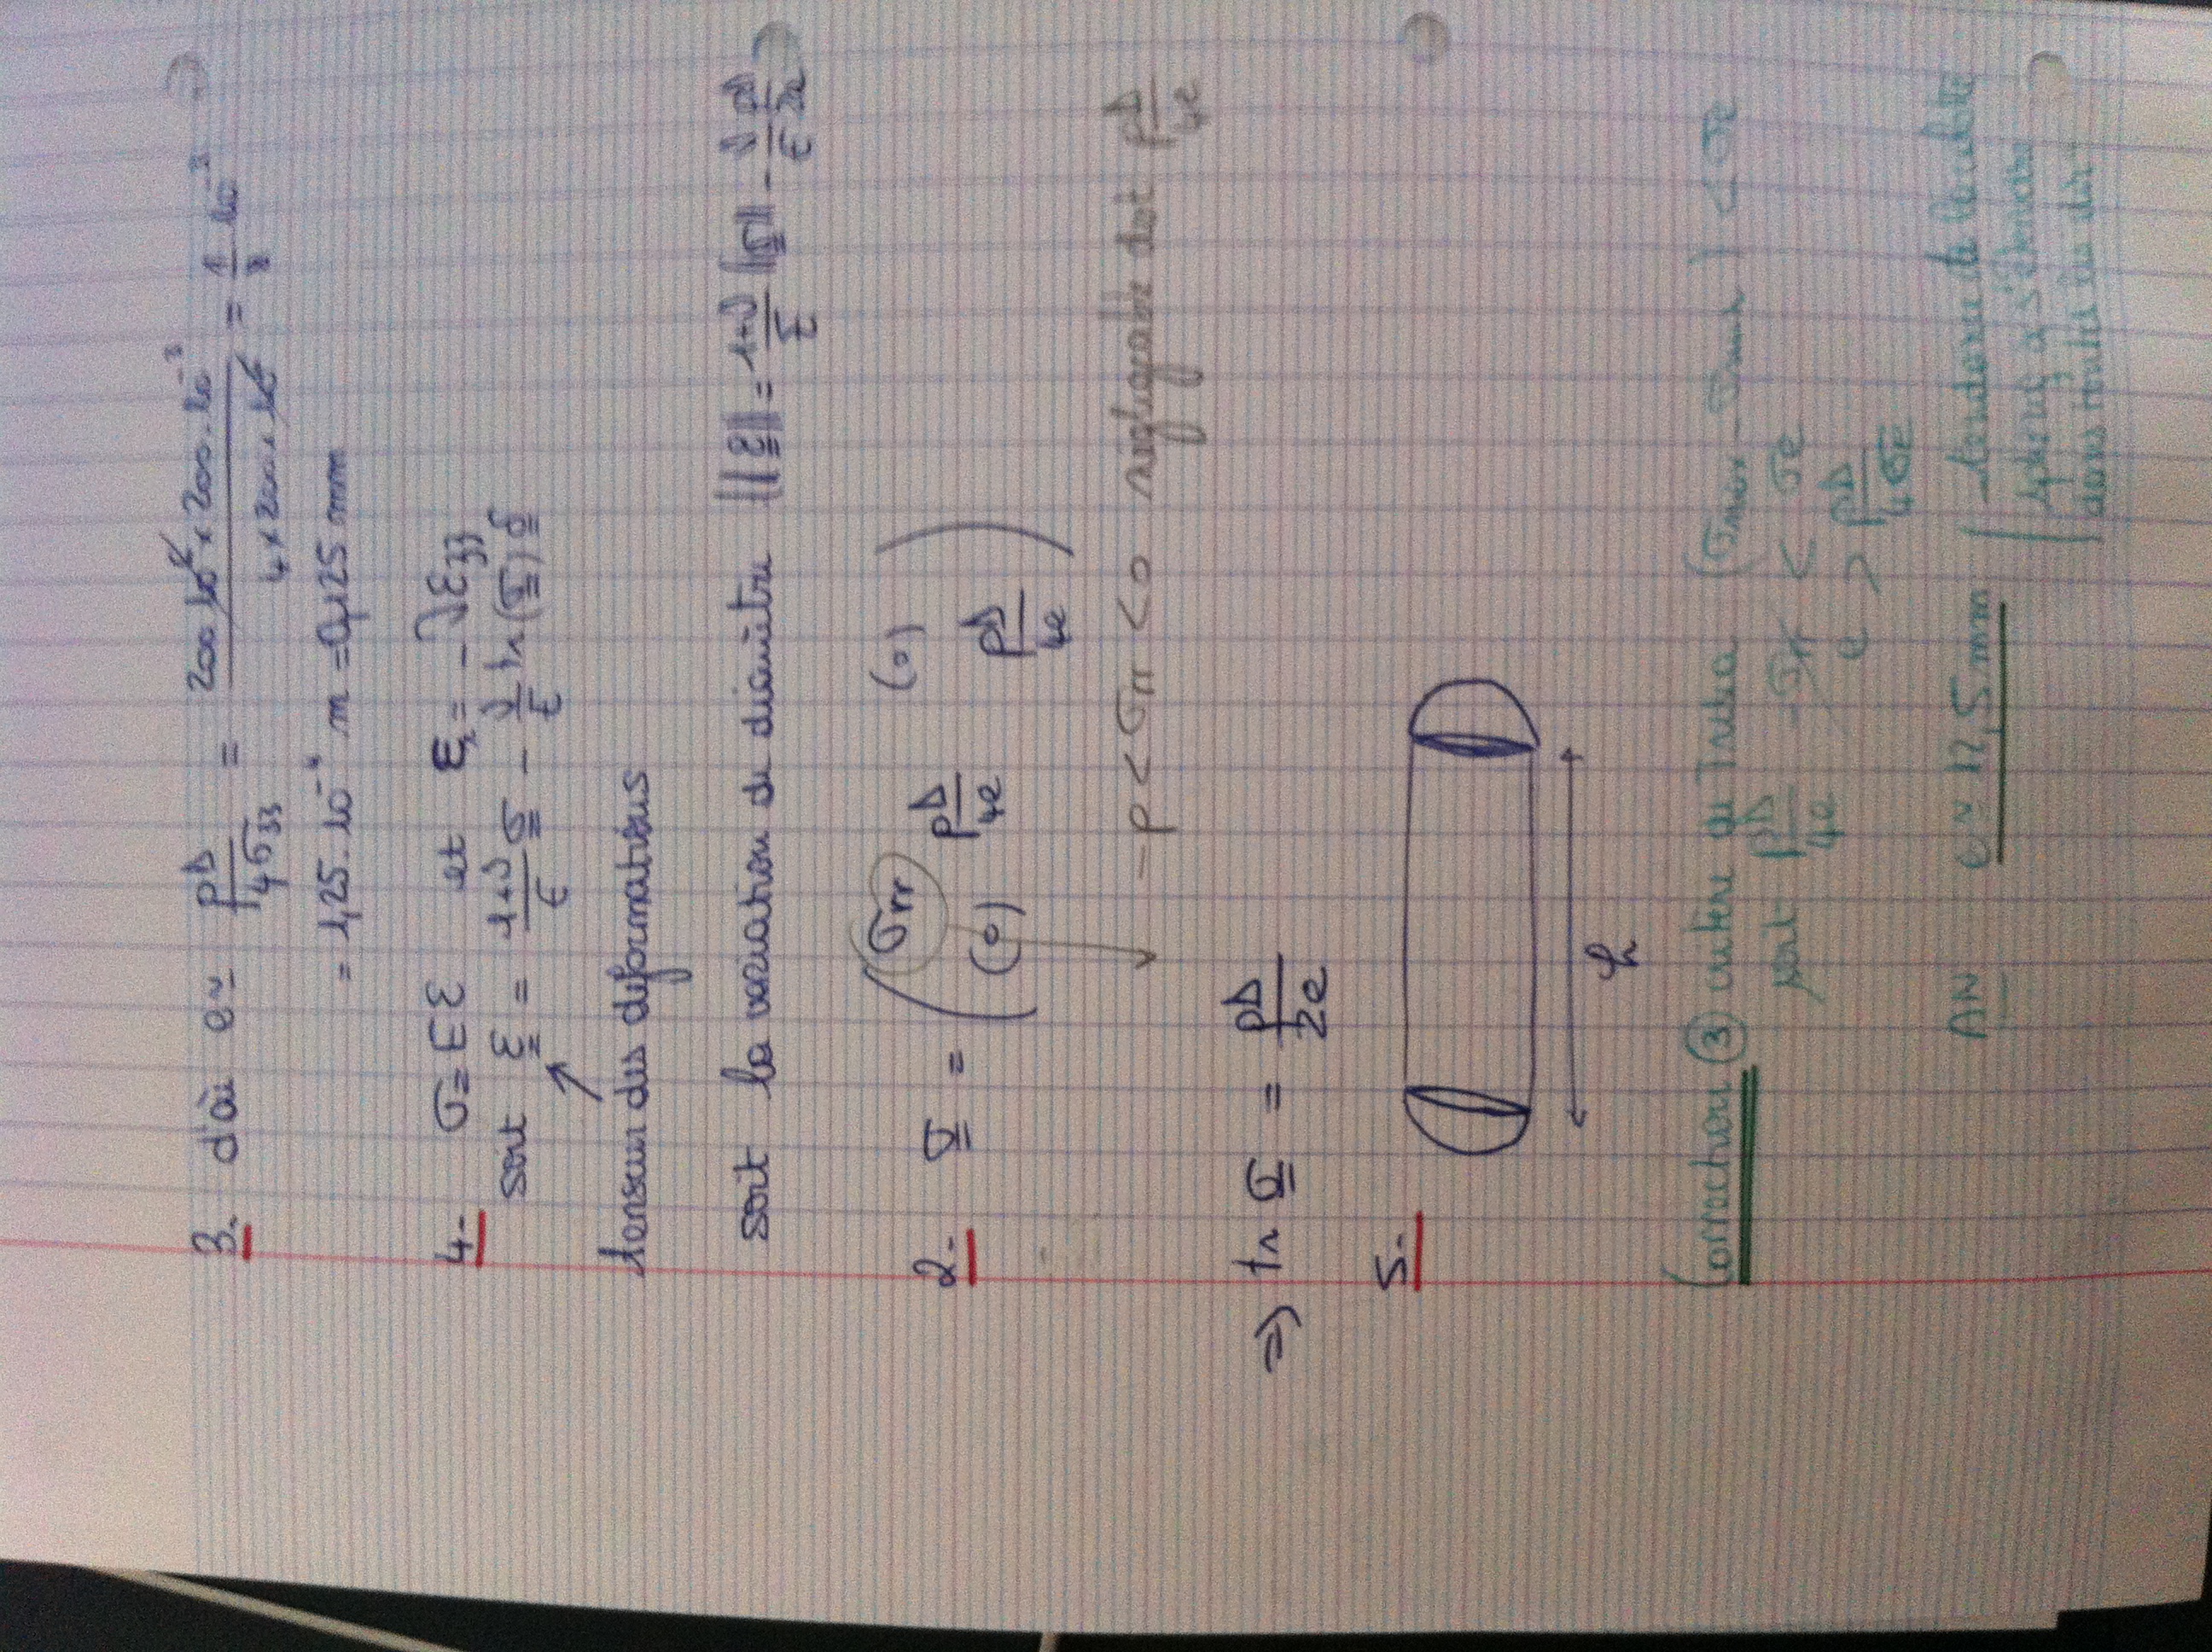 3. d'où e ≃ pD/4σ33 = 200 10^6 × 200.10^-3 / 4×200×10^6 = 1/8 10^-3
= 1,25.10^-4 m = 0,125 mm
4- σ = Eε et ε = -νε33
soit ε = (1+ν)/E σ - ν/E tr(σ) δ
tenseur des déformations
soit la variation de diamètre ||ε|| = (1+ν)/E ||σ|| - ν/E pD/2e
2- σ = ( σrr (0)
pD/4e
(0) pD/4e )
-p < σrr < 0 négligeable dvt pD/4e
⇒ tr σ = pD/2e
5-
h
Correction ③ critère de Tresca (σmax - σmin) < σe
soit pD/4e - σrr < σe
e > pD/4σe
AN e ≃ 12,5 mm
- tendance de la calotte
sphériq à s'étendre
dans toutes les dir-